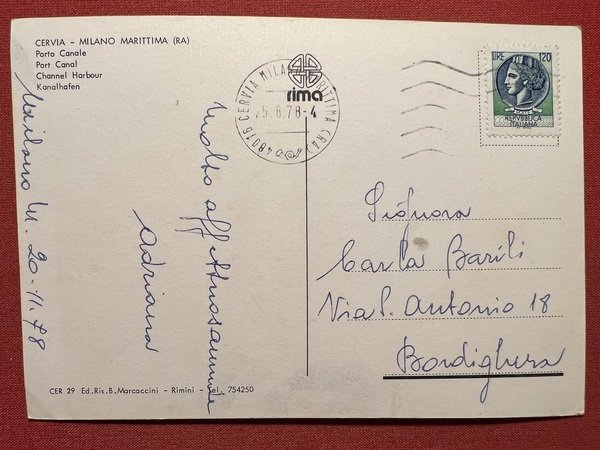 CERVIA - MILANO MARITTIMA (RA)
Porto Canale
Port Canal
Channel Harbour
Kanalhafen
rima
48016 CERVIA MILANO MARITTIMA (RA)
25.8.78-4
LIRE 120
REPVBBLICA
ITALIANA
Milano M. 20.11.78
Molto affettuosamente
Adriana
Signora
Carla Barili
Via S. Antonio 18
Bordighera
CER 29 Ed.Ris.B.Marcaccini - Rimini - Tel. 754250